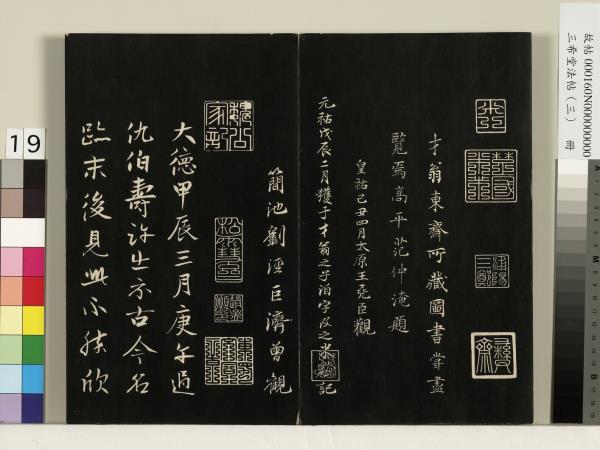 才翁東齋所藏圖書嘗盡
覽焉高平范仲淹題
皇祐己丑四月太原王堯臣觀
元祐戊辰二月獲于才翁之子洎字及之米黻記
簡池劉涇巨濟曾觀
大德甲辰三月庚午過
仇伯壽許出示古今名
臨末後見此不勝欣
故帖 000160N000000000
三希堂法帖（三） 冊
19